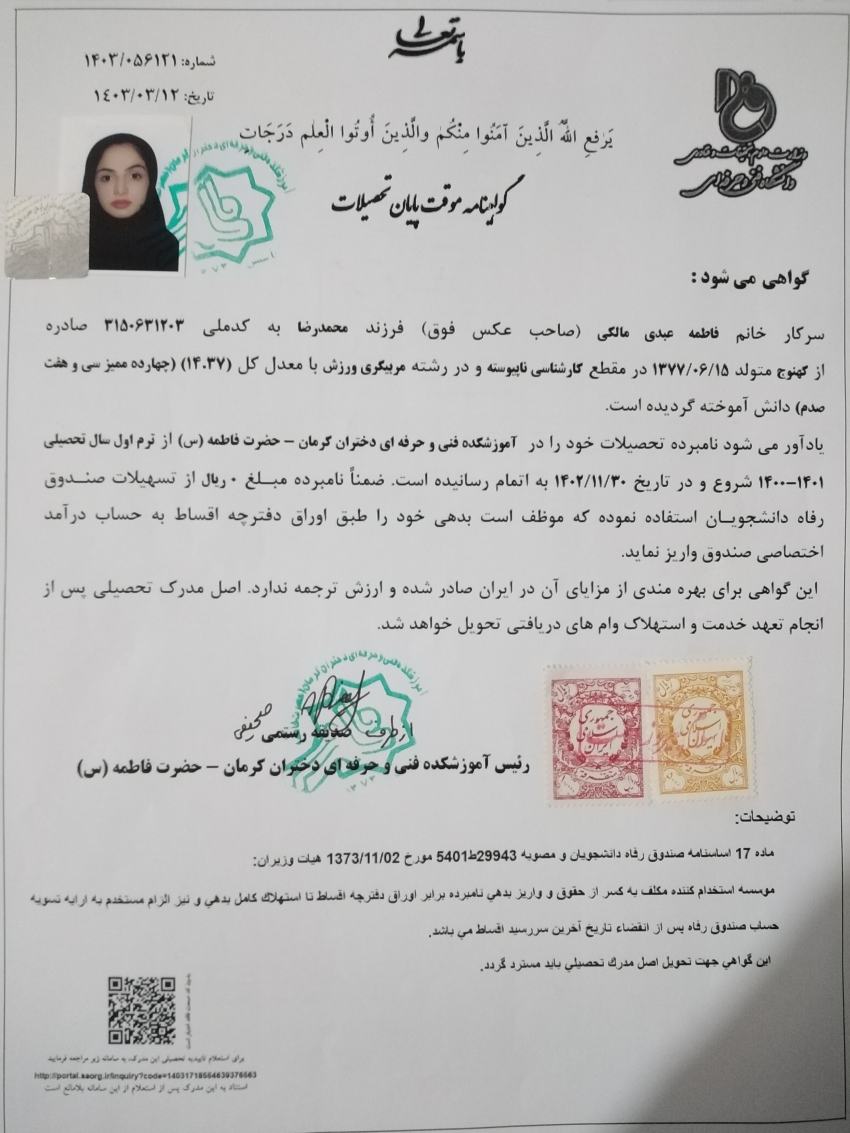 باسمه تعالی
شماره: ۱۴۰۳/۰۵۶۱۲۱
تاریخ: ۱۴۰۳/۰۳/۱۲
وزارت علوم تحقیقات و فناوری
دانشگاه فنی و حرفه‌ای
یَرفَعِ اللَّهُ الَّذِینَ آمَنُوا مِنْکُم والَّذِینَ أُوتُوا الْعِلم دَرَجَات
گواهینامه موقت پایان تحصیلات
گواهی می شود :
سرکار خانم فاطمه عبدی مالکی (صاحب عکس فوق) فرزند محمدرضا به کدملی ۳۱۵۰۶۳۱۲۰۳ صادره
از کهنوج متولد ۱۳۷۷/۰۶/۱۵ در مقطع کارشناسی ناپیوسته و در رشته مربیگری ورزش با معدل کل (۱۴.۳۷) (چهارده ممیز سی و هفت
صدم) دانش آموخته گردیده است.
یادآور می شود نامبرده تحصیلات خود را در آموزشکده فنی و حرفه ای دختران کرمان – حضرت فاطمه (س) از ترم اول سال تحصیلی
۱۴۰۰-۱۴۰۱ شروع و در تاریخ ۱۴۰۲/۱۱/۳۰ به اتمام رسانیده است. ضمناً نامبرده مبلغ ۰ ریال از تسهیلات صندوق
رفاه دانشجویان استفاده نموده که موظف است بدهی خود را طبق اوراق دفترچه اقساط به حساب درآمد
اختصاصی صندوق واریز نماید.
این گواهی برای بهره مندی از مزایای آن در ایران صادر شده و ارزش ترجمه ندارد. اصل مدرک تحصیلی پس از
انجام تعهد خدمت و استهلاک وام های دریافتی تحویل خواهد شد.
از طرف صدیقه رستمی
رئیس آموزشکده فنی و حرفه ای دختران کرمان – حضرت فاطمه (س)
جمهوری اسلامی ایران
جمهوری اسلامی ایران
توضیحات:
ماده 17 اساسنامه صندوق رفاه دانشجویان و مصوبه 29943ط5401 مورخ 1373/11/02 هیات وزیران:
موسسه استخدام کننده مکلف به کسر از حقوق و واریز بدهي نامبرده برابر اوراق دفترچه اقساط تا استهلاك کامل بدهي و نیز الزام مستخدم به ارایه تسویه
حساب صندوق رفاه پس از انقضاء تاریخ آخرین سررسید اقساط مي باشد.
این گواهي جهت تحویل اصل مدرك تحصیلي باید مسترد گردد.
برای استعلام تاییدیه تحصیلی این مدرک، به سامانه زیر مراجعه فرمایید
http://portal.saorg.ir/inquiry?code=14031718564639376563
استناد به این مدرک پس از استعلام از این سامانه بلامانع است